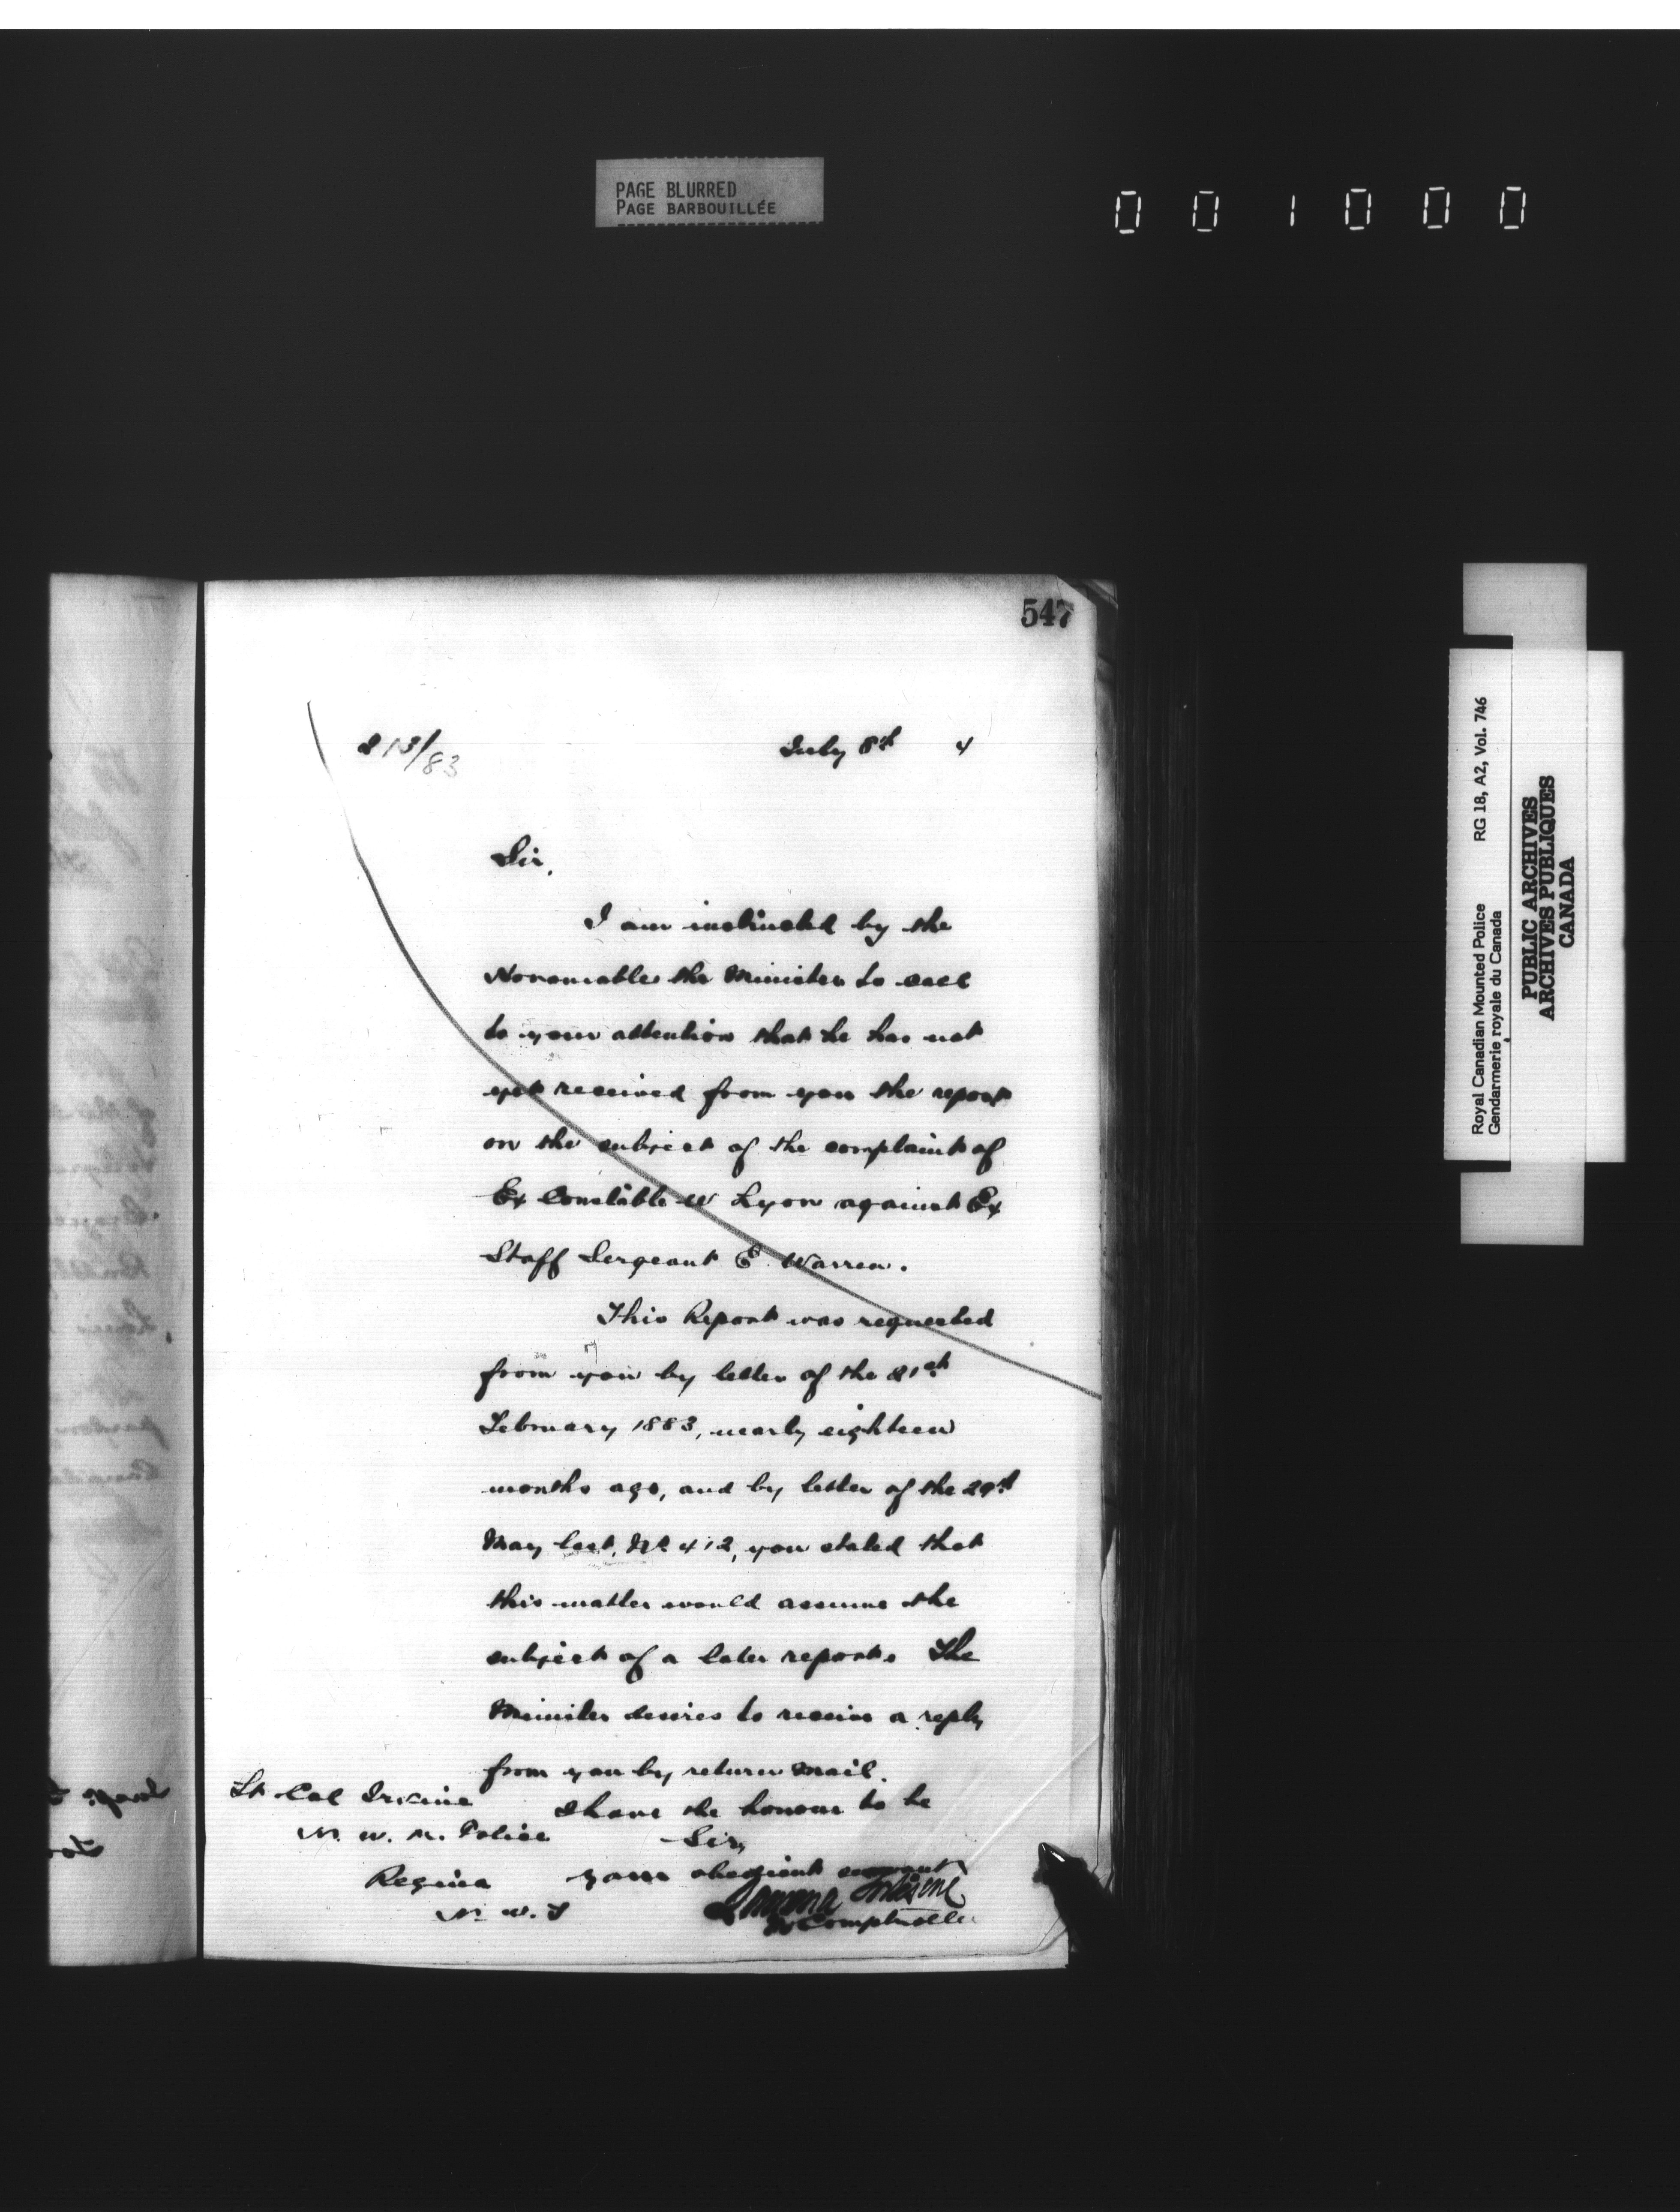 PAGE BLURRED
PAGE BARBOUILLÉE
001000
547
213/83
July 8th 4
Sir,
I am instructed by the
Honourable the Minister to call
to your attention that he has not
yet received from you the report
on the subject of the complaint of
Ex Constable W Lyon against Ex
Staff Sergeant E. Warren.
This Report was requested
from you by letter of the 21st
February 1883, nearly eighteen
months ago, and by letter of the 29th
May last, No 412, you stated that
this matter would assume the
subject of a later report. The
Minister desires to receive a reply
from you by return mail.
I have the honour to be
Sir,
Your obedient servant
Comptroller
Lt Col Irvine
N. W. M. Police
Regina
N. W. T
Royal Canadian Mounted Police RG 18, A2, Vol. 746
Gendarmerie royale du Canada
PUBLIC ARCHIVES
ARCHIVES PUBLIQUES
CANADA